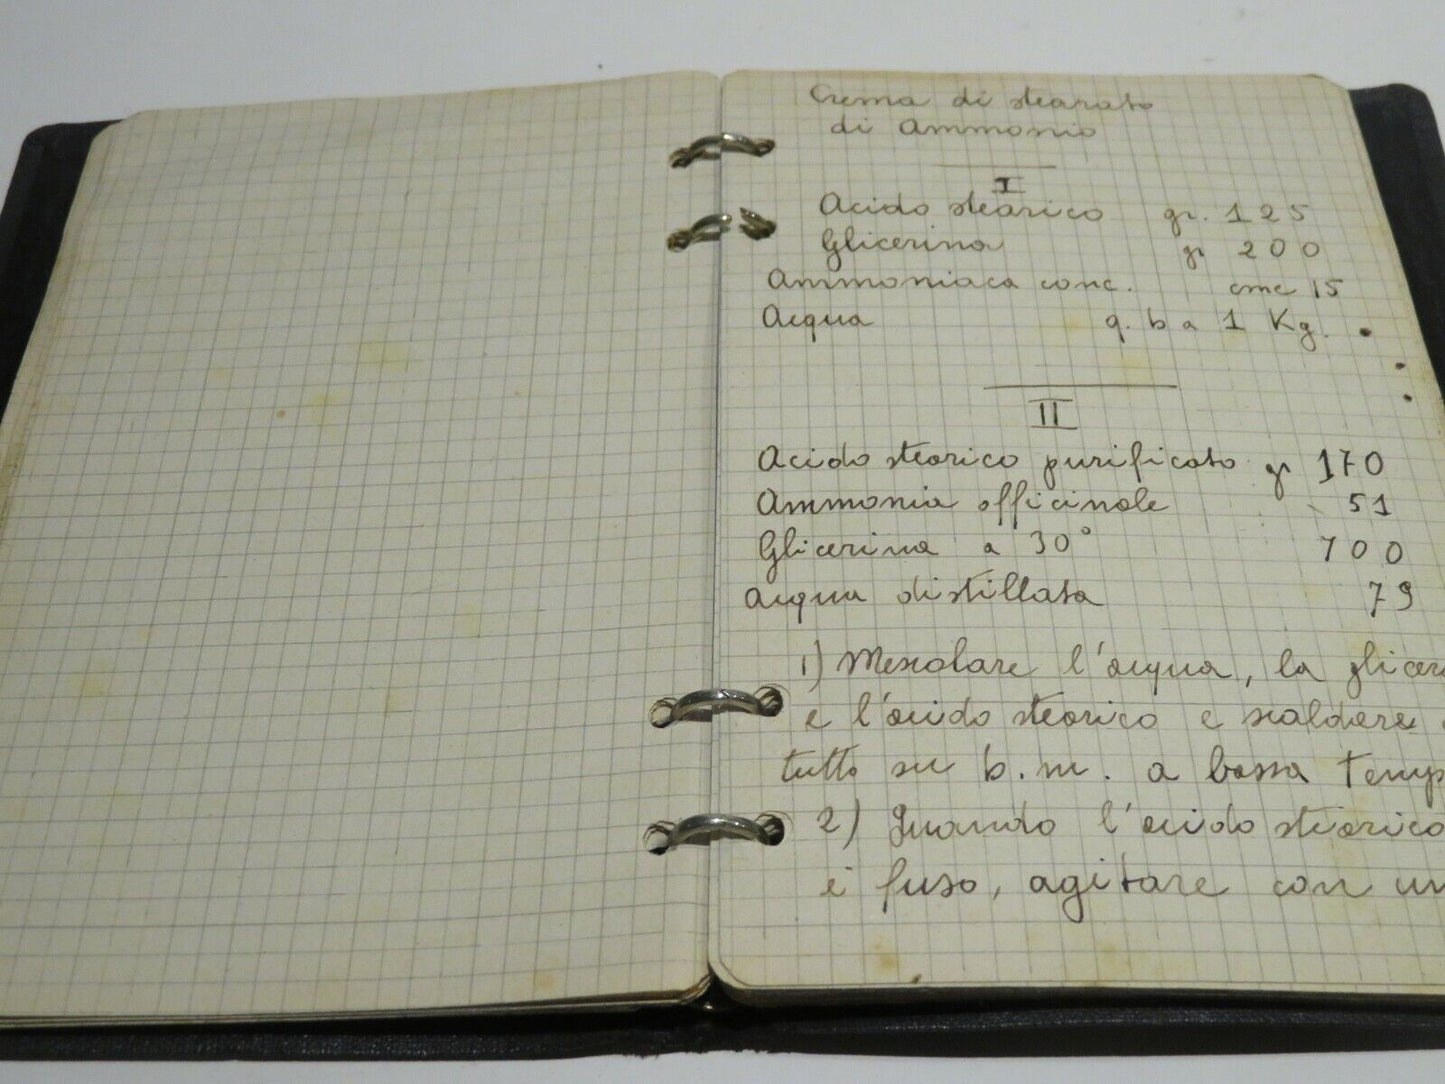 Crema di stearato
di Ammonio
I
Acido stearico gr. 125
Glicerina gr 200
Ammoniaca conc. cmc 15
Acqua q. b a 1 Kg.
II
Acido stearico purificato gr 170
Ammonia officinale 51
Glicerina a 30° 700
Acqua distillata 79
1) Mescolare l'acqua, la glicer
e l'acido stearico e scaldare
tutto su b.m. a bassa temp
2) Quando l'acido stearico
è fuso, agitare con un